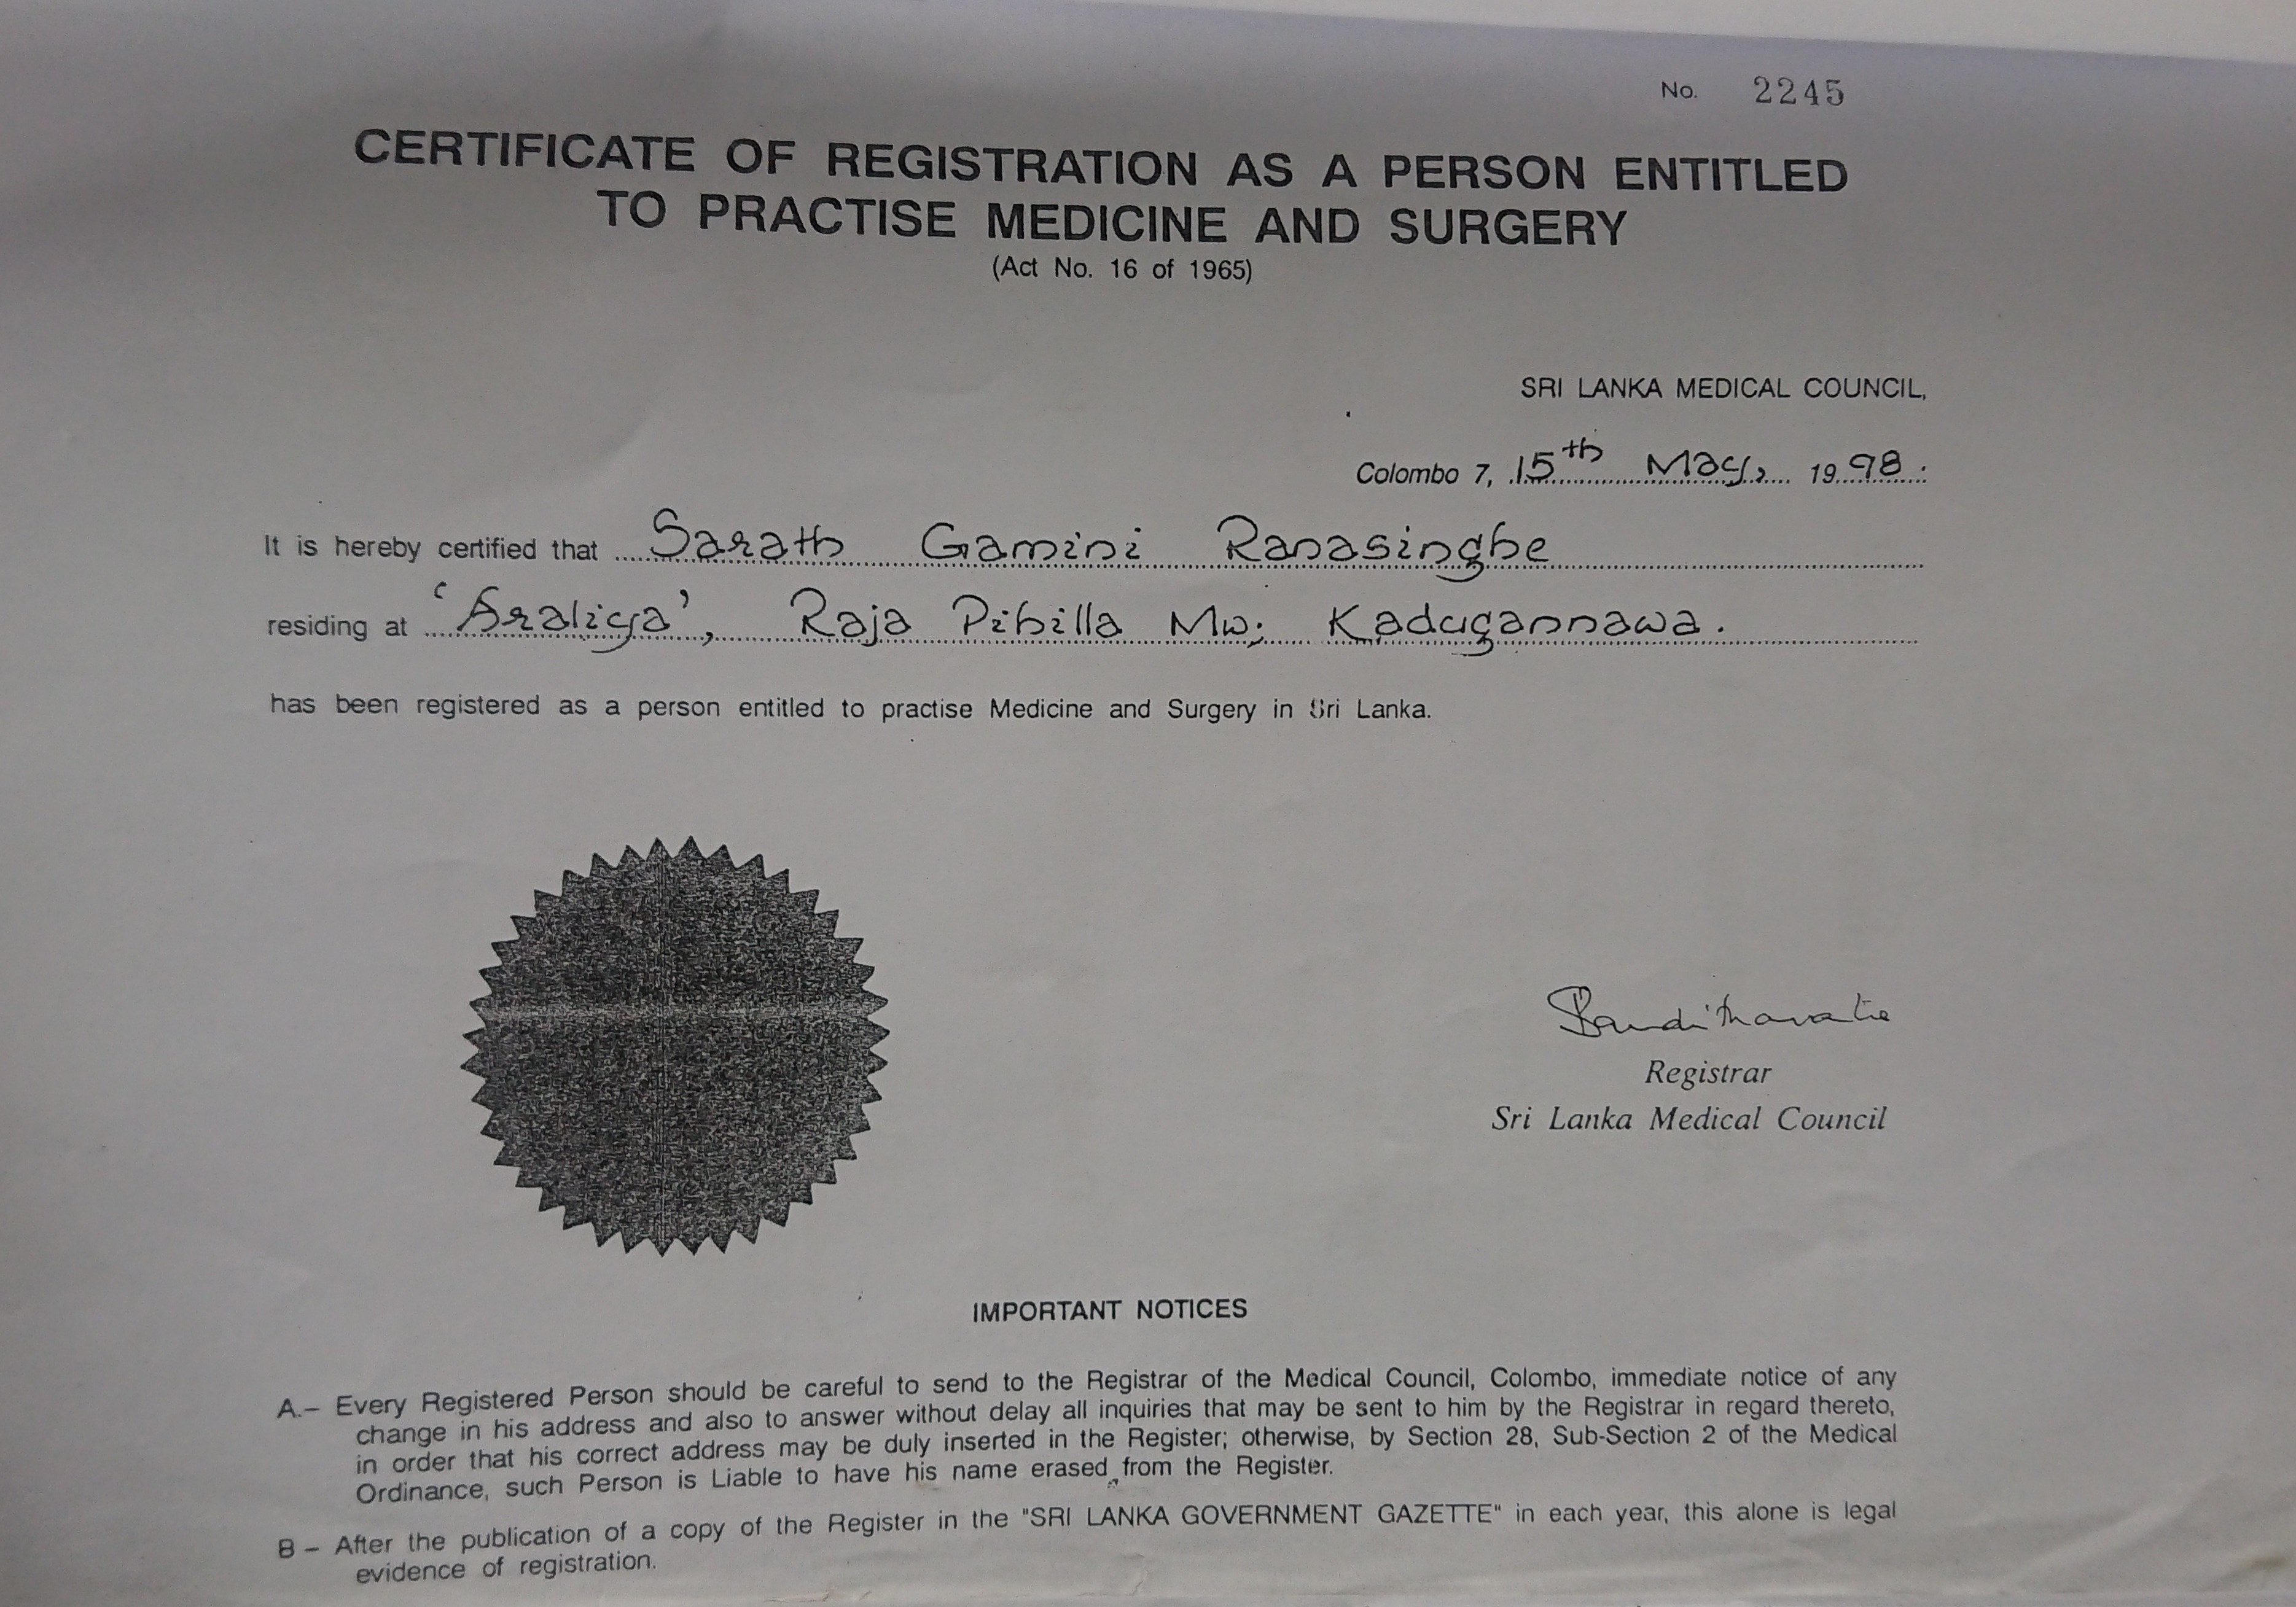 No. 2245
CERTIFICATE OF REGISTRATION AS A PERSON ENTITLED
TO PRACTISE MEDICINE AND SURGERY
(Act No. 16 of 1965)
SRI LANKA MEDICAL COUNCIL,
Colombo 7, 15th May, 1998.
It is hereby certified that Sarath Gamini Ranasinghe
residing at 'Araliya', Raja Pihilla Mw; Kadugannawa.
has been registered as a person entitled to practise Medicine and Surgery in Sri Lanka.
Registrar
Sri Lanka Medical Council
IMPORTANT NOTICES
A.– Every Registered Person should be careful to send to the Registrar of the Medical Council, Colombo, immediate notice of any
change in his address and also to answer without delay all inquiries that may be sent to him by the Registrar in regard thereto,
in order that his correct address may be duly inserted in the Register; otherwise, by Section 28, Sub-Section 2 of the Medical
Ordinance, such Person is Liable to have his name erased from the Register.
B – After the publication of a copy of the Register in the "SRI LANKA GOVERNMENT GAZETTE" in each year, this alone is legal
evidence of registration.